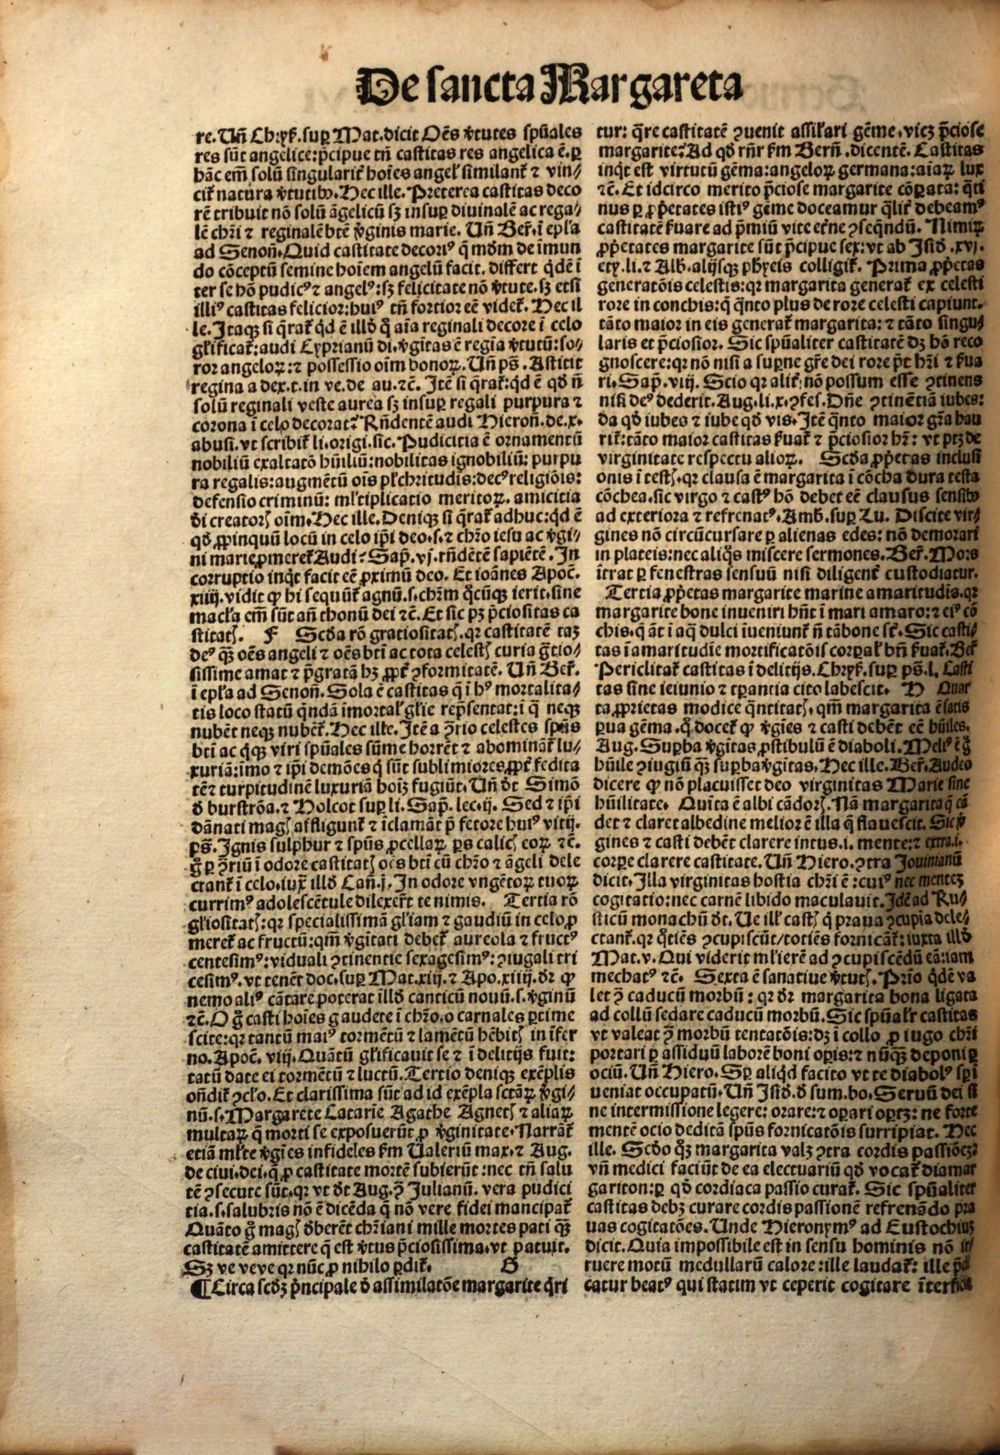 De sancta Margareta
re. Uñ Chryſ. ſuꝑ Mat. dicit Oẽs v̓tutes ſpũales
res ſũt angelice: p̃cipue tñ caſtitas res angelica ẽ. ꝑ
hãc em̃ ſolũ ſingularit̃ hoĩes angel̓ ſimilant̃ ⁊ vin/
cit̃ natura v̓tutibꝰ. Hec ille. Preterea caſtitas deco
rẽ tribuit nõ ſolũ ãgelicũ ſꝫ inſuꝑ diuinalẽ ac rega/
lẽ chr̃i ⁊ reginalẽ btẽ v̓ginis marie. Uñ Ber̃. ĩ ep̃la
ad Senoñ. Quid caſtitate decoriꝰ q̃ mõm de ĩmun
do cõceptũ ſemine hoĩem angelũ facit. differt q̃dẽ ĩ
ter ſe hõ pudicꝰ ⁊ angelꝰ: ſꝫ felicitate nõ v̓tute. ſꝫ etſi
illiꝰ caſtitas felicior: huiꝰ tñ fortior eẽ videt̃. Hec il
le. Itaqꝫ ſi q̃rat̃ qd̃ ẽ illd̓ q̃ aĩa reginali decore ĩ celo
gl̓ificat̃: audi Cyprianũ di. v̓gĩtas ẽ regĩa v̓tutũ: ſo/
ror angeloꝝ: ⁊ poſſeſſio oĩm bonoꝝ. Uñ pſ. Aſtitit
regina a dex. t. in ve. de au. ⁊c̃. Itẽ ſi q̃rat̃: qd̃ ẽ qd̓ ñ
ſolũ reginali veſte aurea ſꝫ inſuꝑ regali purpura ⁊
corona ĩ celo decorat̃? Rñdentẽ audi Hieroñ. de. x.
abuſi. vt ſcribit̃ li. origi. ſic. Pudicicia ẽ ornamentũ
nobiliũ exaltatõ hũiliũ: nobilitas ignobiliũ: purpu
ra regalis: augmẽtũ oĩs pl̓chritudĩs: decꝰ religiõis:
defenſio criminũ: ml̓tiplicatio meritoꝝ. amicitia
d̓i creatorꝭ oĩm. Hec ille. Deniqꝫ ſi q̃rat̃ adhuc: qd̃ ẽ
qd̓ ꝓpinquũ locũ in celo ip̃i deo. ſ. ⁊ chr̃o ieſu ac v̓gi/
ni marie ꝓmeret̃ Audi: Sap̃. vj. rñdẽtẽ ſapiẽtẽ. In
corruptio inq̃t facit eẽ ꝓximũ deo. Et ioãnes Apoc̃.
xiiij. vidit ꝙ hi ſequũt̃ agnũ. ſ. chr̃m q̃cũqꝫ ierit. ſine
macl̓a em̃ ſũt añ thonũ dei ⁊c̃. Et ſic pꝫ p̃cioſitas ca
ſtitatꝭ. F Scd̓a rõ gratioſitatꝭ. qr caſtitatẽ tãꝫ
deꝰ qꝫ oẽs angeli ⁊ oẽs bt̃i ac tota celeſtꝭ curia gr̃tio/
ſiſſime amat ⁊ p̃gratã hꝫ ꝓpt̃ ꝯformitatẽ. Uñ Ber̃.
ĩ ep̃la ad Senoñ. Sola ẽ caſtitas q̃ ĩ hꝰ mortalita/
tis loco ſtatũ q̃ndã ĩmortal̓ gl̓ie rep̃ſentat: ĩ q̃ neqꝫ
nubẽt neqꝫ nubẽt̃. Hec ille. Itẽ a ꝯ̃rio celeſtes ſpũs
bt̃i ac q̃qꝫ viri ſpũales ſũme horrẽt ⁊ abominãt̃ lu/
xuriã: imo ⁊ ip̃i demões q̃ ſũt ſublimiores, ꝓpt̃ fedita
tẽ ⁊ turpitudinẽ luxuriã hoĩꝫ fugiũt. Uñ d̓t Simõ
d̓ burſtrõa. ⁊ Holcot ſup li. Sap̃. lec. ij. Sed ⁊ ip̃i
dãnati magꝭ affligunt̃ ⁊ ĩclamãt p̃ fetore huiꝰ vitij.
pſ. Ignis ſulphur ⁊ ſpũs ꝓcellaꝝ ꝑs calicꝭ eoꝝ ⁊c̃.
g̊ ꝑ ꝯ̃riũ ĩ odore caſtitatꝭ oẽs bt̃i cũ chr̃o ⁊ ãgeli dele
ctant̃ ĩ celo. iux̃ illd̓ Cañ. j. In odore vngẽtoꝝ tuoꝝ
currimꝰ adoleſcẽtule dilexer̃t te nimis. Tertia rõ
gl̓ioſitatꝭ: qr ſpecialiſſimã gl̓iam ⁊ gaudiũ in celo ꝓ
meret̃ ac fructũ: qm̃ v̓gitati debet̃ aureola ⁊ fructꝰ
centeſimꝰ: viduali ꝯtinentie ſexageſimꝰ: ꝯiugali tri
ceſimꝰ. vt tenẽt doc. ſuꝑ Mat. xiij. ⁊ Apo. xiiij. d̓r ꝙ
nemo aliꝰ cãtare poterat ĩllõ canticũ nouũ. ſ. v̓ginũ
⁊c̃. O g̊ caſti hoĩes gaudete ĩ chr̃o. o carnales ꝑtime
ſcite: qr tantũ maiꝰ tormẽtũ ⁊ lamẽtũ hẽbitꝭ in ĩfer
no. Apoc̃. viij. Quãtũ gl̓ificauit ſe ⁊ ĩ delitijs fuit:
tatũ date ei tormẽtũ ⁊ luctũ. Tertio deniqꝫ exẽplis
oñdit̃ ꝯcl̓o. Et clariſſima ſũt ad id exẽpla ſctãꝝ v̓gi/
nũ. ſ. Margarete Catarie Agathe Agnetꝭ ⁊ aliaꝝ
multaꝝ q̃ morti ſe expoſuerũt ꝓ v̓ginitate. Narrãt̃
etiã ml̓te v̓gies infideles ẜm Ualeriũ max. ⁊ Aug.
de ciui. dei. q̃ ꝓ caſtitate mortẽ ſubierũt: nec tñ ſalu
tẽ ꝯſecute ſũt. qr vt d̓t Aug. ꝯ̃ Julianũ. vera pudici
tia. ſ. ſalubris nõ ẽ dicẽda q̃ nõ vere fidei mancipat̃
Quãto g̊ magꝭ d̓berẽt chr̃iani mille mortes pati qꝫ
caſtitatẽ amittere q̃ eſt v̓tus p̃cioſiſſima. vt patuit.
Sꝫ ve veve qr nũc ꝓ nihilo ꝑdit̃. G
¶Circa ſcd̓ꝫ p̃ncipale d̓ aſſimilatõe margarite q̃ri
tur: q̃re caſtitatẽ ꝯuenit aſſil̓ari gẽme. vicꝫ p̃cioſe
margarite? Ad qd̓ rñr̃ ẜm Berñ. dicentẽ. Caſtitas
inq̃t eſt virtutũ gẽma: angeloꝝ germana: aĩaꝝ lux
⁊c̃. Et idcirco merito p̃cioſe margarite cõꝑata: q̃ti
nus ꝑ ꝓp̃etates iſtiꝰ gẽme doceamur q̃lit̃ debeamꝰ
caſtitatẽ ẜuare ad p̃miũ vite et̃ne ꝯſeq̃ndũ. Nimiꝝ
ꝓp̃etates margarite ſũt p̃cipue ſex: vt ab Iſid̓. xvj.
ety. li. ⁊ Alb. alijſqꝫ phyẽis colligit̃. Prima ꝓp̃etas
generatõis celeſtis: qr margarita generat̃ ex celeſti
rore in conchis: q̃ q̃nto plus de rore celeſti capiunt.
tãto maior in eis generat̃ margarita: ⁊ tãto ſingu/
laris et p̃cioſior. Sic ſpũaliter caſtitatẽ dꝫ hõ reco
gnoſcere: qr nõ niſi a ſuꝑne gr̃e dei rore p̃t hr̃i ⁊ ẜua
ri. Sap̃. viij. Scio qr alit̃ nõ poſſum eſſe ꝯtinens
niſi deꝰ dederit. Aug. li. x. ꝯfeſ. Dñe ꝯtinentiã iubes:
da qd̓ iubes ⁊ iube qd̓ vis. Itẽ q̃nto maior gr̃a hau
rit̃: tãto maior caſtitas ẜuat̃ ⁊ p̃cioſior hr̃: vt ptꝫ de
virginitate reſpectu alioꝝ. Scd̓a ꝓp̃etas incluſi
onis ĩ teſtꝭ. qr clauſa ẽ margarita ĩ cõcha dura teſta
cõchea. ſic virgo ⁊ caſtꝰ hõ debet eẽ clauſus ſenſibꝰ
ad exteriora ⁊ refrenatꝰ. Amb. ſuꝑ Lu. Diſcite vir/
gines nõ circũcurſare ꝑ alienas edes: nõ demorari
in plateis: nec aliq̃s miſcere ſermones. Ber̃. Mors
ĩtrat ꝑ feneſtras ſenſuũ niſi diligent̃ cuſtodiatur.
Tertia ꝓp̃etas margarite marine amaritudis. qr
margarite bone inueniri hñt ĩ mari amaro: ⁊ eiꝰ cõ
chis. q̃ ãt ĩ aq̃ dulci ĩueniunt̃ ñ tã bone ſt̃. Sic caſti/
tas ĩ amaritudĩe mortificatõis corꝑal̓ bñ ẜuat̃. Ber̃
Periclitat̃ caſtitas ĩ delitijs. Chryſ. ſup pſ. l. Caſti
tas ſine ieiunio ⁊ tꝑantia cito labeſcit. H Quar
ta ꝓprietas modice q̃ntitatꝭ. qm̃ margarita ẽ ſatis
ꝑua gẽma. q̃ docet̃ ꝙ v̓gĩes ⁊ caſti debẽt eẽ hũiles.
Aug. Suꝑba v̓gitas ꝓſtibulũ ẽ diaboli. Meliꝰ ẽ g̊
hũile ꝯiugiũ qꝫ ſuꝑba v̓gitas. Hec ille. Ber̃. Audeo
dicere ꝙ nõ placuiſſet deo virginitas Marie ſine
hũilitate. Quĩta ẽ albi cãdorꝭ. Nã margarita q̃ cã
det ⁊ claret albedine melior ẽ illa q̃ flaueſcit. Sic v̓
gines ⁊ caſti debẽt clarere intus. i. mente: ⁊ extra. i.
corꝑe clarere caſtitate. Uñ Hiero. ꝯtra Jouinianũ
dicit. Illa virginitas hoſtia chr̃i ẽ: cuiꝰ nec mentẽꝫ
cogitatio: nec carnẽ libido maculauit. Idẽ ad Ru/
ſticũ monachũ d̓t. Ue ill̓ caſtꝭ q̃ praua ꝯcupĩa dele/
ctant̃. qr q̃tiẽs ꝯcupiſcũt/ totiẽs fornicãt̃: iuxta illd̓
Mat. v. Qui viderit ml̓ierẽ ad ꝯcupiſcẽdũ eã: iam
mechatꝰ ⁊c̃. Sexta ẽ ſanatiue v̓tutꝭ. Prĩo q̃dẽ va
let ꝯ̃ caducũ morbũ: qr d̓r margarita bona ligata
ad collũ ſedare caducũ morbũ. Sic ſpũal̓r caſtitas
vt valeat ꝯ̃ morbũ tentatõis: dꝫ ĩ collo ꝓ iugo chr̃i
portari ꝑ aſſiduũ laborẽ boni oꝑis: ⁊ nũqꝫ deponi ꝑ
ociũ. Uñ Hiero. Sꝑ aliqd̃ facito vt te diabolꝰ ſp̃ i
ueniat occupatũ. Uñ Iſid̓. d̓ ſum. bo. Seruũ dei ſi
ne intermiſſione legere: orare: ⁊ oꝑari oꝑtꝫ: ne forte
mentẽ ocio deditã ſpũs fornicatõis ſurripiat. Hec
ille. Scd̓o qꝫ margarita valꝫ ꝯtra cordis paſſiõꝫ:
vñ medici faciũt de ea electuariũ qd̓ vocat̃ diamar
gariton: ꝑ qd̓ cordiaca paſſio curat̃. Sic ſpũaliter
caſtitas debꝫ curare cordis paſſionẽ refrenãdo pra
uas cogitatões. Unde Hieronymꝰ ad Euſtochiuꝫ
dicit. Quia impoſſibile eſt in ſenſu hominis nõ ir/
ruere motũ medullarũ calore: ille laudat̃: ille p̃di
catur beatꝰ qui ſtatim vt ceperit cogitare ĩterficit